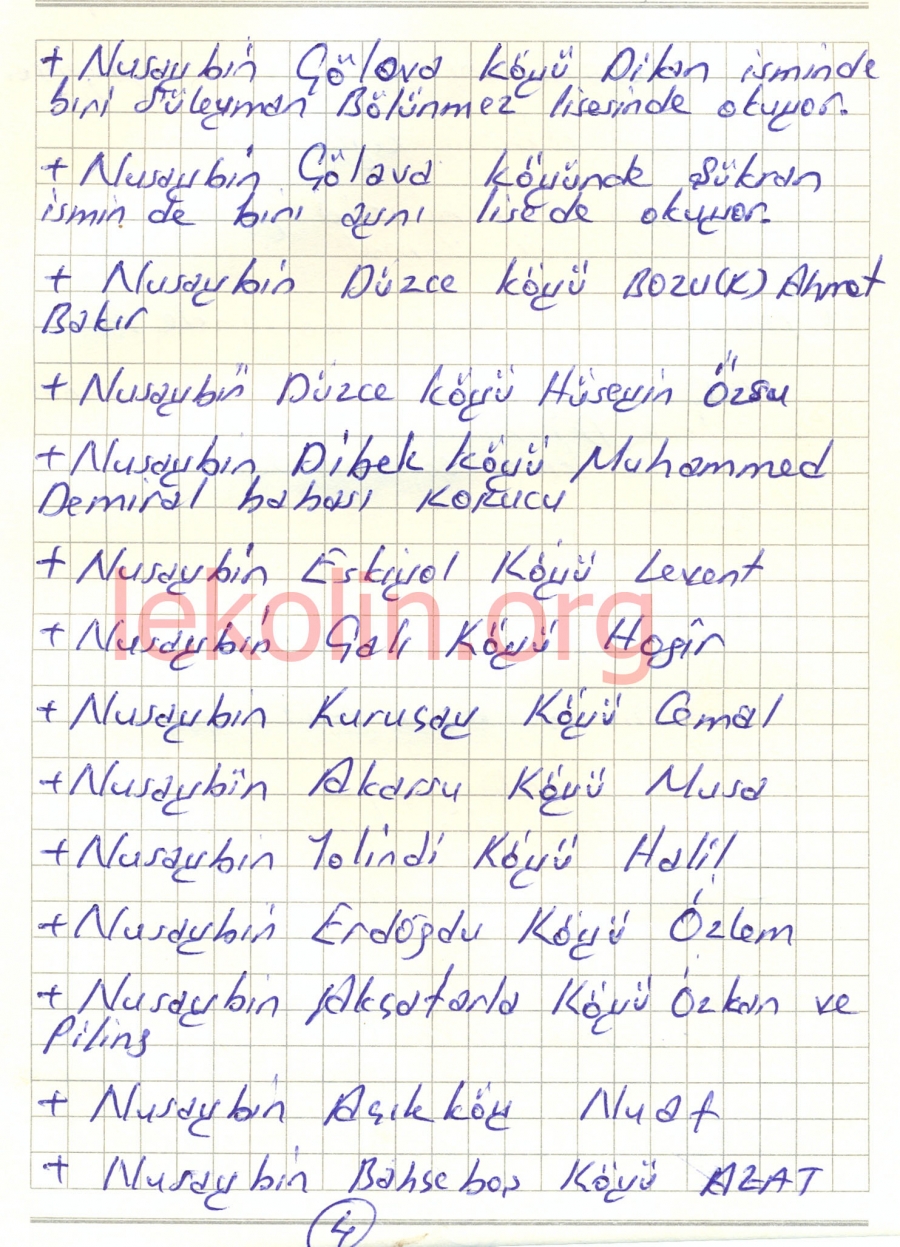 + Nusaybin Gölova köyü Dikan isminde
biri Süleyman Bölünmez lisesinde okuyor.
+ Nusaybin Gölava köyünde Şükran
ismin de biri aynı lisede okuyor.
+ Nusaybin Düzce köyü BOZU(K) Ahmet
Bakır
+ Nusaybin Düzce köyü Hüseyin Özsu
+ Nusaybin Dibek köyü Muhammed
Demiral babası korucu
+ Nusaybin Eskiyol Köyü Levent
lekolin.org
+ Nusaybin Çalı Köyü Hogir
+ Nusaybin Kuruçay Köyü Cemal
+ Nusaybin Akarsu Köyü Musa
+ Nusaybin Yolindi Köyü Halil
+ Nusaybin Erdoğdu Köyü Özlem
+ Nusaybin Akçatarla Köyü Özkan ve
Piling
+ Nusaybin Açıkköy Nuaf
+ Nusaybin Bahçebaşı Köyü AZAT
4